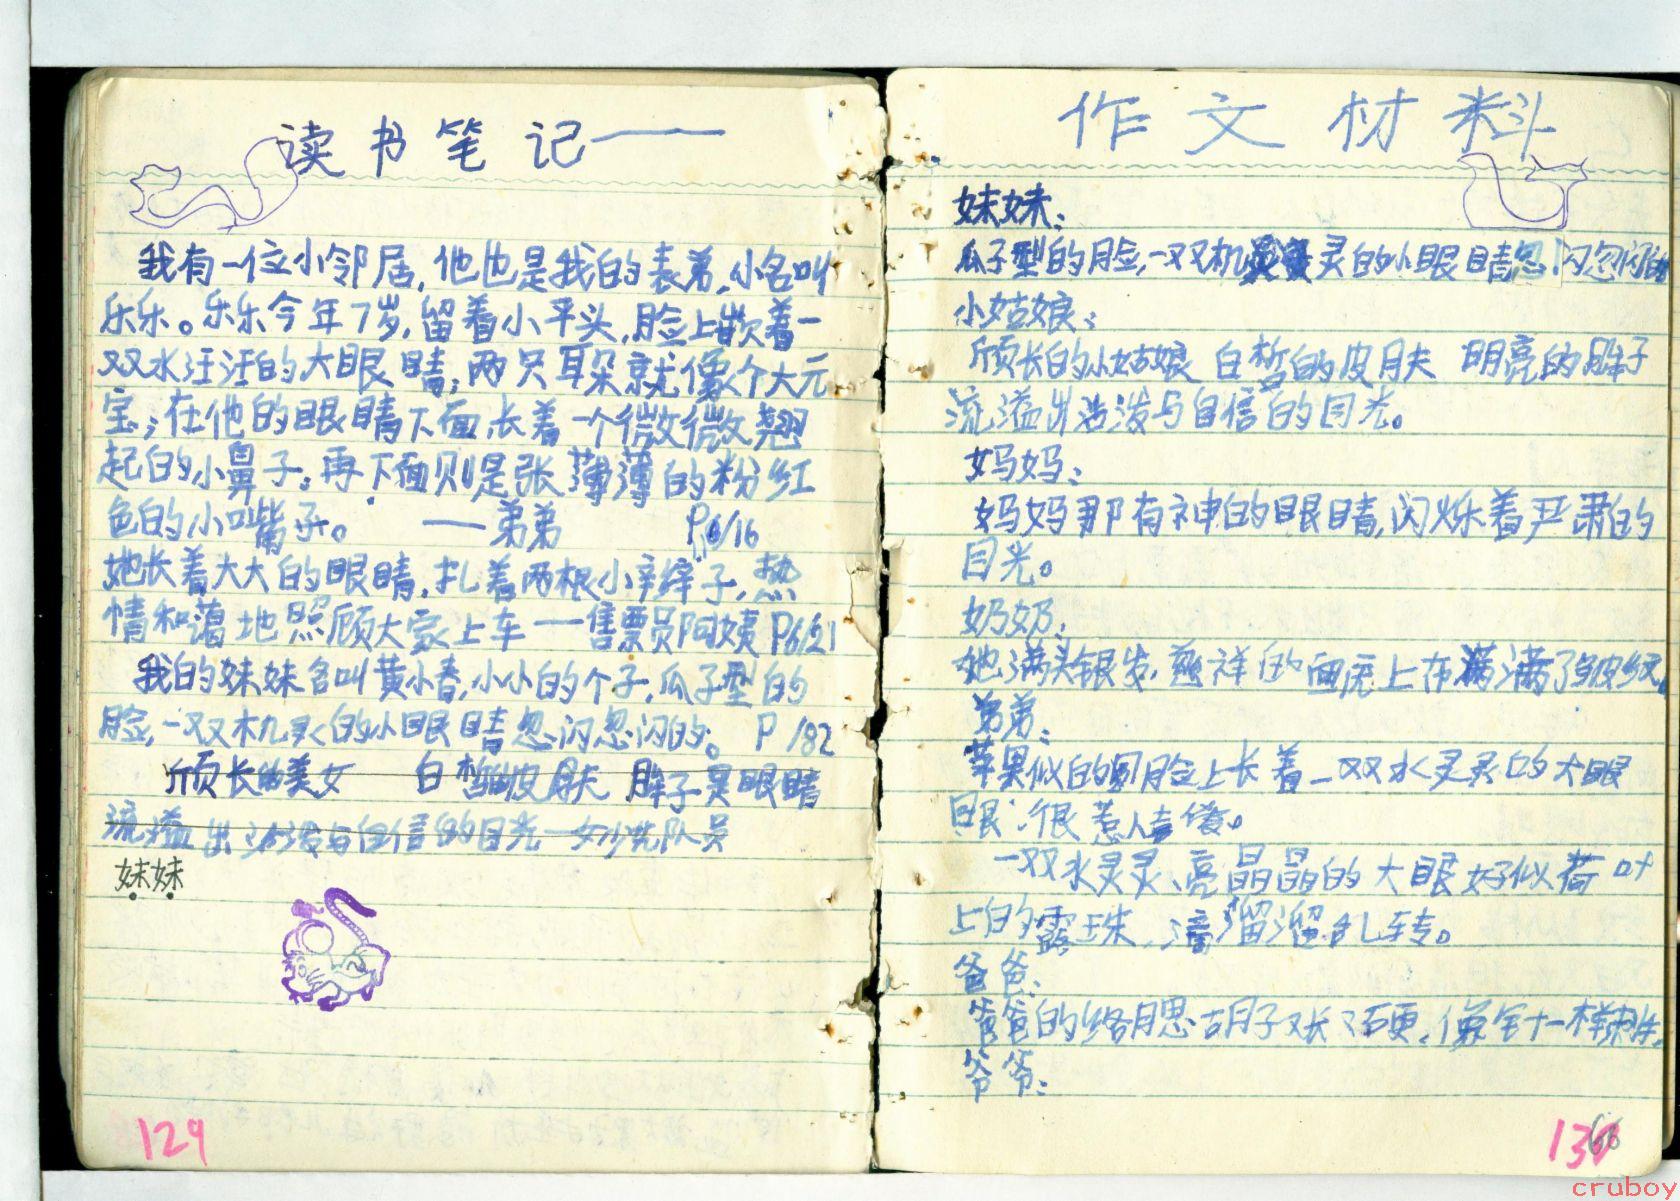 读书笔记——
我有一位小邻居,他也是我的表弟,小名叫
乐乐。乐乐今年7岁,留着小平头,脸上嵌着一
双水汪汪的大眼睛;两只耳朵就像个大元
宝;在他的眼睛下面,长着一个微微翘
起的小鼻子。再下面则是张薄薄的粉红
色的小嘴子。 ——弟弟 P6/16
她长着大大的眼睛,扎着两根小辫子,热
情和蔼地照顾大家上车——售票员阿姨 P6/21
我的妹妹名叫黄小春,小小的个子,瓜子型的
脸,一双机灵的小眼睛忽闪忽闪的。 P /82
颀长的美女 白皙的皮肤 眸子是眼睛
流溢出活泼与自信的目光—女少先队员
妹妹
129
作文材料
妹妹:
瓜子型的脸,一双机灵的小眼睛忽闪忽闪的
小姑娘:
颀长的小姑娘 白皙的皮肤 明亮的眸子
流溢出活泼与自信的目光。
妈妈:
妈妈那有神的眼睛,闪烁着严肃的
目光。
奶奶:
她满头银发,慈祥的面庞上布满了皱纹。
弟弟:
苹果似的圆脸上长着一双水灵灵的大眼
眼:很惹人喜爱。
一双水灵灵、亮晶晶的大眼好似荷叶
上的露珠,滴溜溜乱转。
爸爸:
爸爸的络腮胡子又长又硬,像针一样
爷爷:
130
66
cruboy